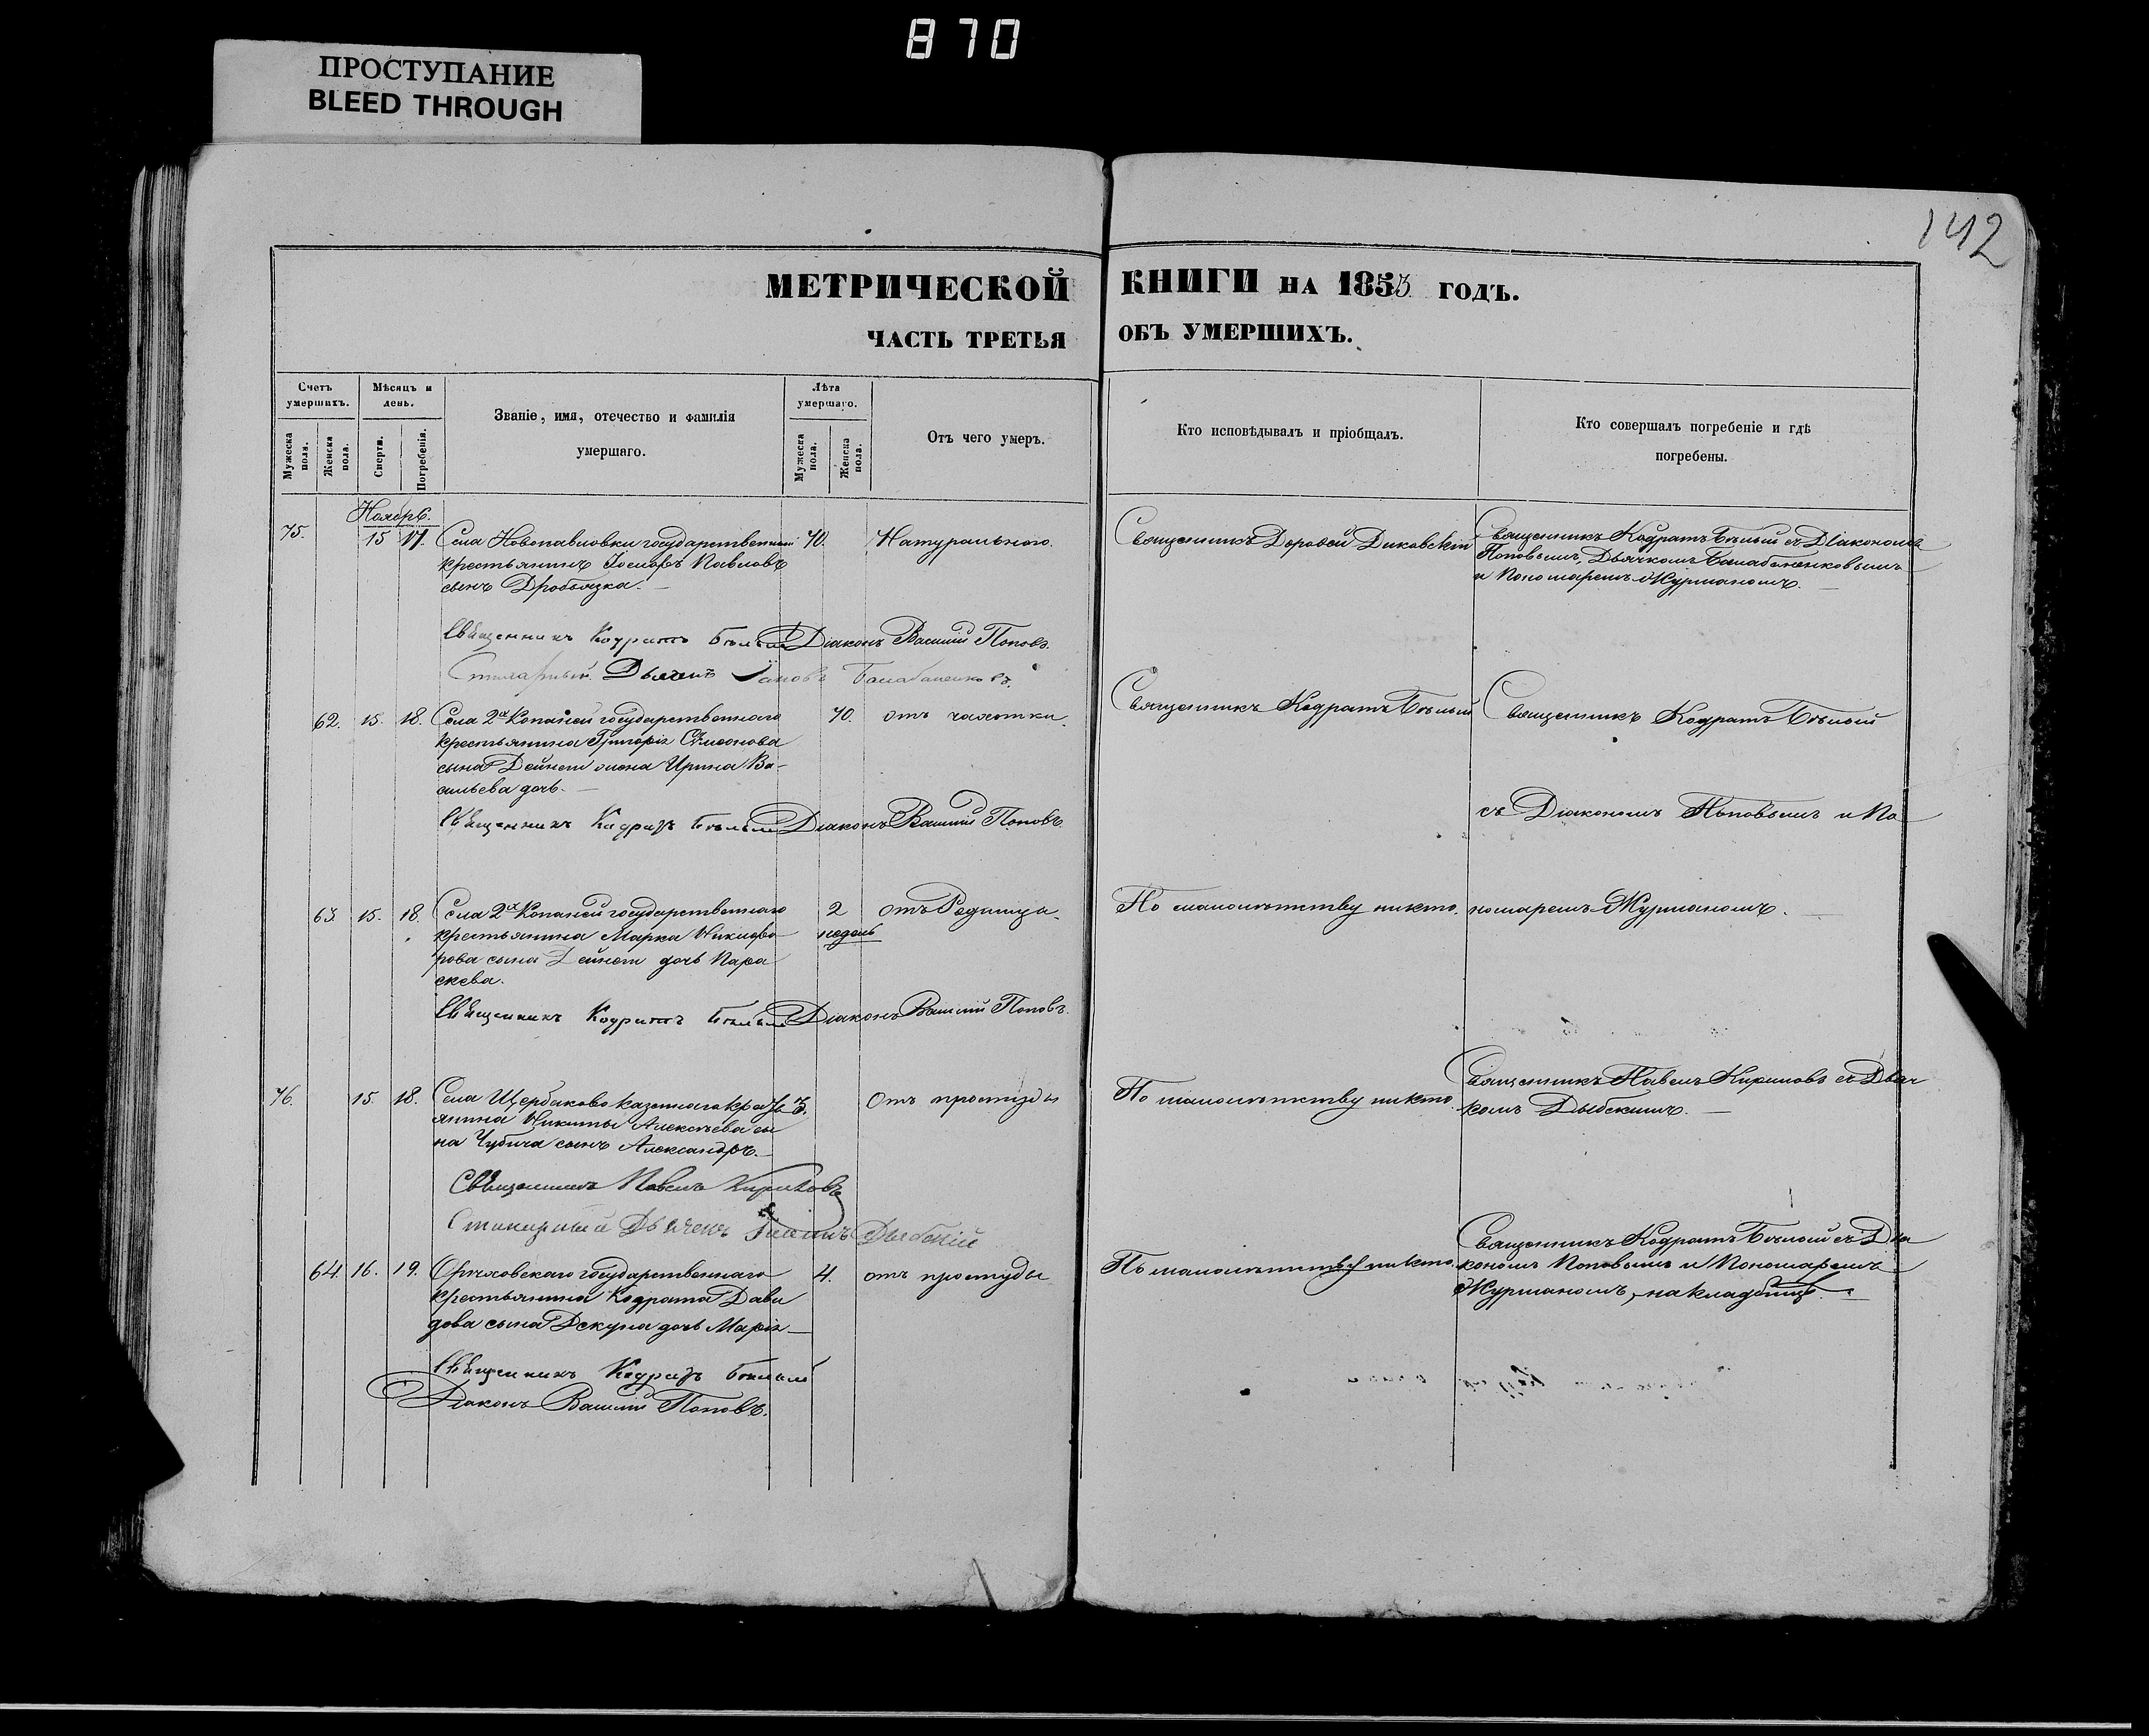 870
ПРОСТУПАНИЕ
BLEED THROUGH
142
МЕТРИЧЕСКОЙ КНИГИ НА 1853 ГОДЪ.
ЧАСТЬ ТРЕТЬЯ ОБЪ УМЕРШИХЪ.
Счетъ умершихъ.
Мужеска пола.
Женска пола.
Мѣсяцъ и день.
Смерти.
Погребенія.
Званіе, имя, отечество и фамилія умершаго.
Лѣта умершаго.
Мужеска пола.
Женска пола.
Отъ чего умеръ.
Кто исповѣдывалъ и пріобщалъ.
Кто совершалъ погребеніе и гдѣ погребены.
Ноябрь.
75. 15 17. Села Новопавловки государственный 70. Натурально.
крестьянинъ Іосифъ Павловъ
сынъ Дробязка.
Священникъ Дорофей Диковскій
Священникъ Кодратъ Бѣлый съ Діакономъ
Поповымъ, Дьячкомъ Балабаненковымъ
и Пономаремъ Журманомъ.
Священникъ Кодратъ Бѣлый Діаконъ Василій Поповъ.
Стихарный Дьячекъ Балабаненковъ.
62. 15. 18. Села 2хъ Копаней государственнаго 70. отъ чахотки.
крестьянина Григорія Симеонова
сына Дейнеги жена Ирина Ва-
сильева дочь.
Священникъ Кодратъ Бѣлый
Священникъ Кодратъ Бѣлый
съ Діакономъ Поповымъ и По
номаремъ Журманомъ.
Священникъ Кодратъ Бѣлый Діаконъ Василій Поповъ
63. 15. 18. Села 2хъ Копаней государственнаго 2 недель отъ Родимца.
крестьянина Марка Никифо
рова сына Дейнеги дочь Пара
скева.
По малолѣтству никто.
Священникъ Кодратъ Бѣлый Діаконъ Василій Поповъ.
76. 15. 18. Села Щербаково казеннаго крестъ 3. Отъ простуды
янина Никиты Алексѣева сы
на Чубича сынъ Александръ.
По малолѣтству никто.
Священникъ Павелъ Кириловъ съ Дьяч
комъ
Священникъ Павелъ Кириловъ
Стихарный Дьячекъ
64. 16. 19. Орѣховскаго государственнаго 4. отъ простуды
крестьянина Кодрата Дави
дова сына дочь Марія
По малолѣтству никто.
Священникъ Кодратъ Бѣлый съ Діа
кономъ Поповымъ и Пономаремъ
Журманомъ, на кладбищѣ.
Священникъ Кодратъ Бѣлый
Діаконъ Василій Поповъ.